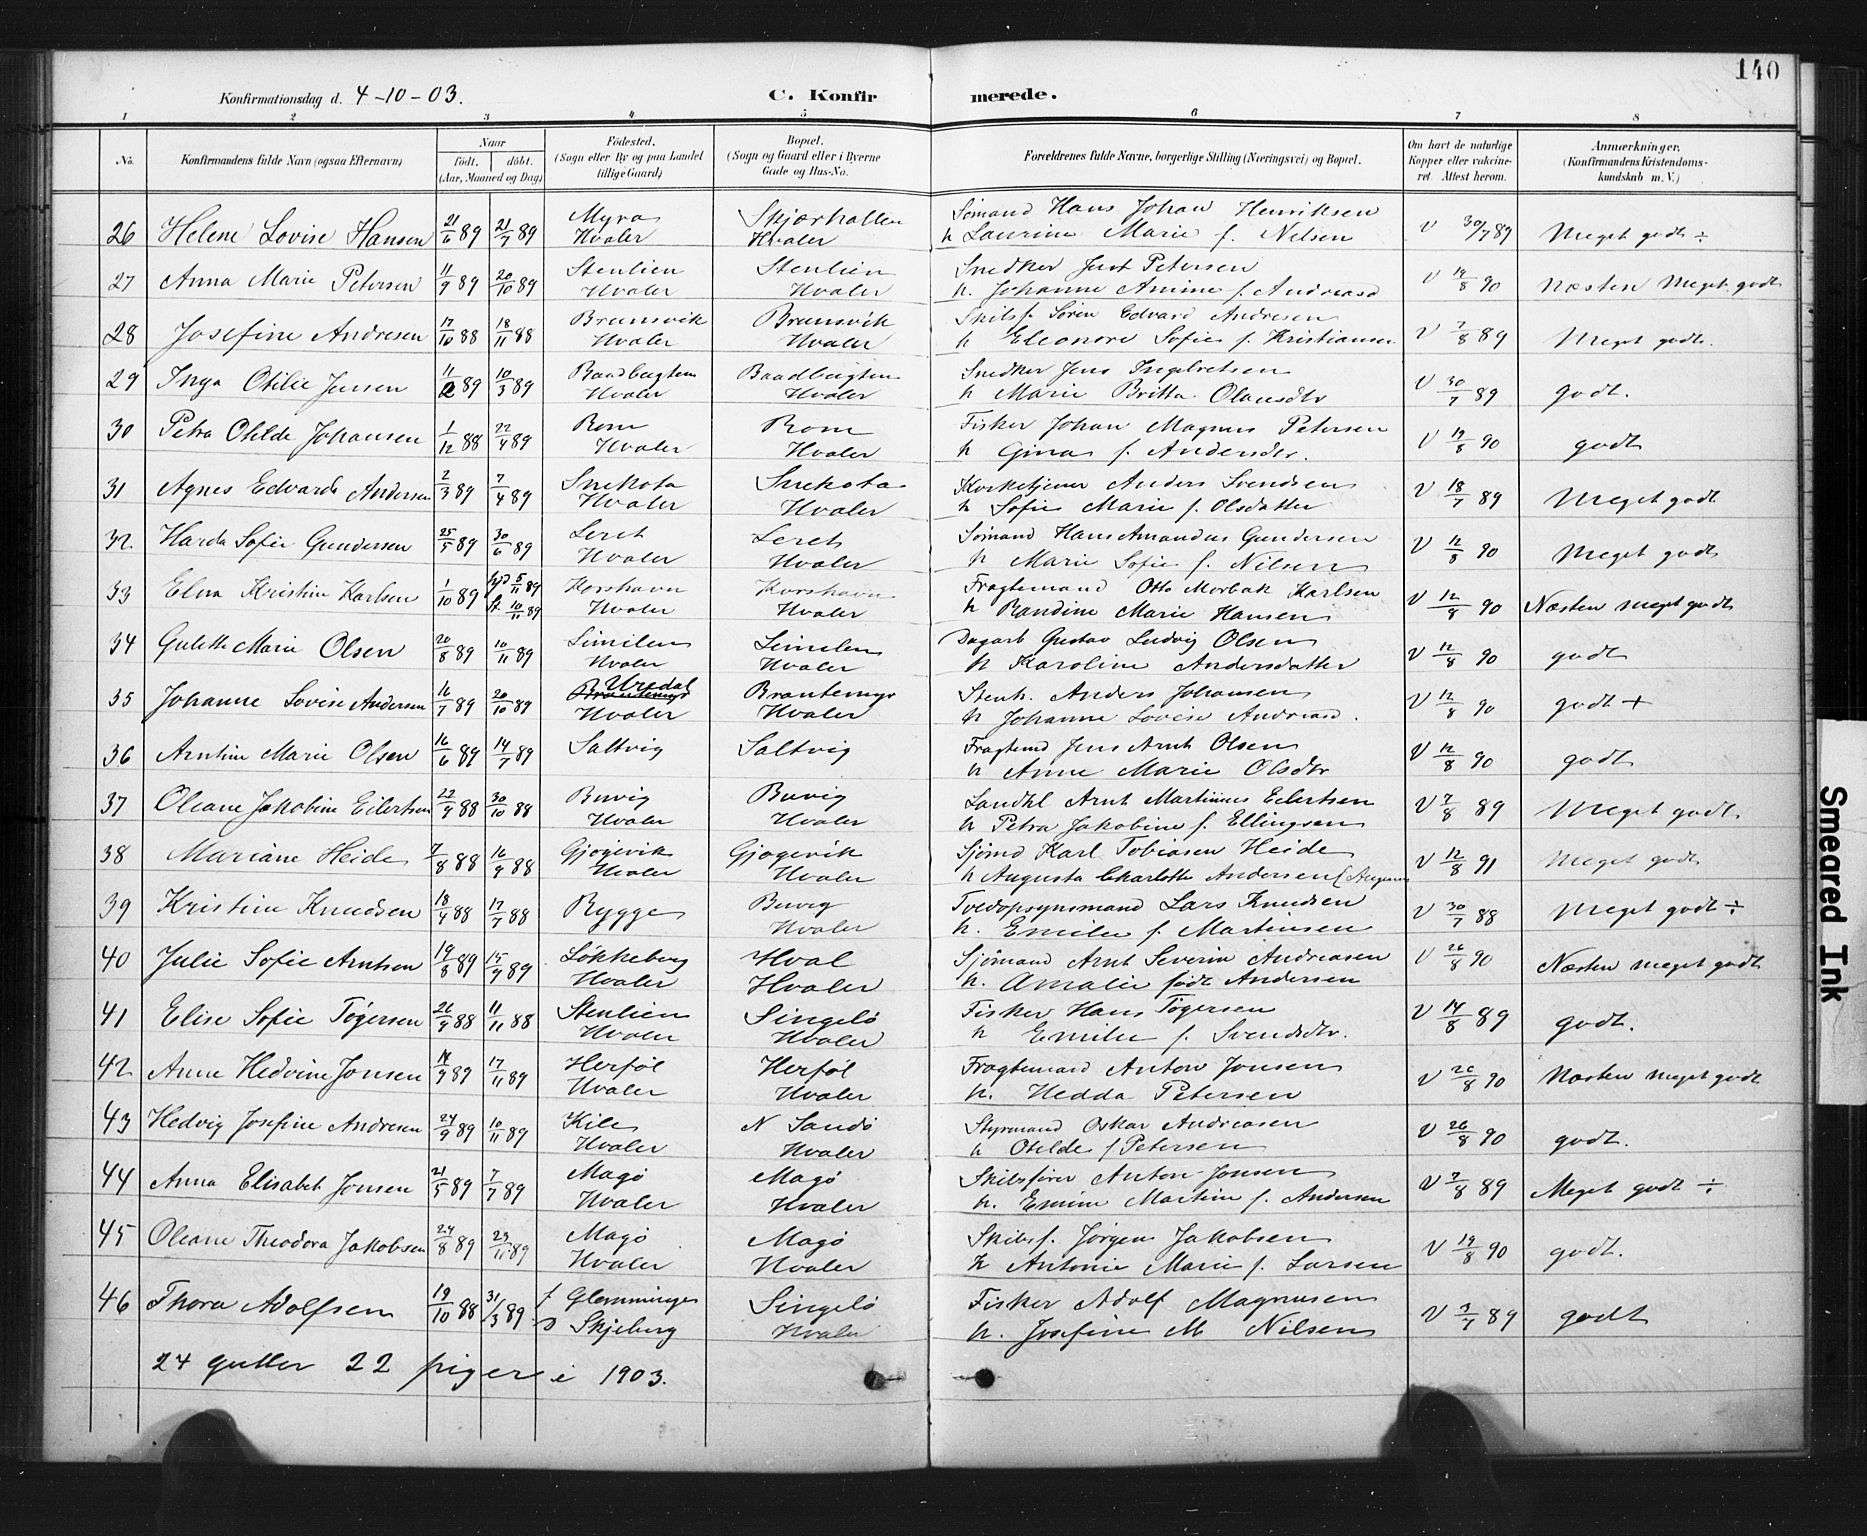 140
Konfirmationsdag d. 4-10-03. C. Konfirmerede.
1 2 3 4 5 6 7 8
No. Konfirmandens fulde Navn (ogsaa Efternavn) Naar født. døbt. (Aar, Maaned og Dag) Fødested. (Sogn eller By og paa Landet tillige Gaard) Bopæl. (Sogn og Gaard eller i Byerne Gade og Hus-No. Forældrenes fulde Navne, borgerlige Stilling (Næringsvei) og Bopæl. Om havt de naturlige Kopper eller vakcineret. Attest herom. Anmærkninger. (Konfirmandens Kristendomskundskab m. V.)
26 Helene Lovise Hansen 21/6 89 21/7 89 Myra Hvaler Skjærhallen Hvaler Sømand Hans Johan Henriksen h Laurine Marie f. Nilsen V 30/7 89 Meget godt ÷
27 Anna Marie Petersen 11/9 89 20/10 89 Stenlien Hvaler Stenlien Hvaler Snedker Just Petersen h. Johanne Amine f. Andreasd V 19/8 90 Næsten Meget godt
28 Josefine Andresen 17/10 88 18/11 88 Brunsvik Hvaler Brunsvik Hvaler Skibsf. Søren Edvard Andresen h Eleonore Sofie f. Kristiansen V 7/8 89 Meget godt.
29 Inga Otilie Jensen 11/2 89 10/3 89 Baadbugten Hvaler Baadbugten Hvaler Snedker Jens Ingebretsen h Marie Britta Olausdtr V 30/7 89 godt.
30 Petra Otilde Johansen 1/12 88 22/4 89 Rom Hvaler Rom Hvaler Fisker Johan Magnus Petersen h Gina f. Andersdtr. V 19/8 90 godt
31 Agnes Edvarda Andersen 2/3 89 7/4 89 Snekota Hvaler Snekota Hvaler Kirketjener Anders Svendsen h Sofie Marie f. Olsdatter V 18/7 89 Meget godt
32 Harda Sofie Gundersen 25/5 89 30/6 89 Leret Hvaler Leret Hvaler Sømand Hans Amandus Gundersen h Marie Sofie f. Nilsen V 12/8 90 Meget godt
33 Elna Kristine Karlsen 1/10 89 hjd 5/11 89 st. 10/11 89 Korshavn Hvaler Korshavn Hvaler Fragtemand Otto Morbak Karlsen h Randine Marie Hansen V 12/8 90 Næsten meget godt
34 Gulette Marie Olsen 20/8 89 10/11 89 Limilen Hvaler Limilen Hvaler Dagarb Gustav Ludvig Olsen h Karoline Andersdatter V 12/8 90 godt
35 Johanne Lovise Andersen 16/7 89 20/10 89 Uredal Brantemyr Hvaler Brantemyr Hvaler Stenh. Anders Johansen h Johanne Lovise Andreasd. V 12/8 90 godt +
36 Arntine Marie Olsen 16/6 89 14/7 89 Saltvig Saltvig Fragtemd Jens Arnt Olsen h Anne Marie Olsdtr V 12/8 90 godt
37 Oleane Jakobine Eilertsen 22/9 88 30/10 88 Buvig Hvaler Buvig Hvaler Landhl Arnt Martinius Eilertsen h Petra Jakobine f. Ellingsen V 7/8 89 Meget godt.
38 Mariane Heide 7/8 88 16/9 88 Gjøgevik Hvaler Gjøgevik Hvaler Sjømd Karl Tobiasen Heide h Augusta Charlotte Andersen V 12/8 91 Meget godt
39 Kristine Knudsen 18/4 88 17/7 88 Rygge Buvig Hvaler Tvedopsynsmand Lars Knudsen h. Emilie f. Martinsen V 30/7 88 Meget godt ÷
40 Julie Sofie Arntsen 19/8 89 15/9 89 Løkkeberg Hvaler Hval Hvaler Sjømand Arnt Severin Andreasen h. Amalie født Andersen V 26/8 90 Næsten meget godt
41 Elise Sofie Tøgersen 26/9 88 11/11 88 Stenlien Hvaler Singelø Hvaler Fisker Hans Tøgersen h Emilie f. Svendsdtr. V 14/8 89 godt.
42 Anne Hedvine Jonsen 14/9 89 17/11 89 Herføl Hvaler Herføl Hvaler Fragtemand Anton Jonsen h. Hedda Petersen V 20/8 90 Næsten meget godt
43 Hedvig Josefine Andresen 24/9 89 10/11 89 Kile Hvaler N Sandø Hvaler Styrmand Oskar Andreasen h Otilde f Petersen V 26/8 90 godt.
44 Anna Elisabet Jonsen 21/5 89 7/7 89 Magø Hvaler Magø Hvaler Skibsfører Anton Jonsen h. Emine Martine f. Andersen V 7/8 89 Meget godt ÷
45 Oleane Theodora Jakobsen 24/8 89 23/11 89 Magø Hvaler Magø Hvaler Skibsf. Jørgen Jakobsen h Antonie Marie f. Larsen V 19/8 90 godt.
46 Thora Adolfsen 19/10 88 31/3 89 f Glemminge D Skjeberg Singelø Hvaler Fisker Adolf Magnusen h. Josefine M Nilsen V 3/7 89 godt
24 gutter 22 piger i 1903.
Smeared Ink